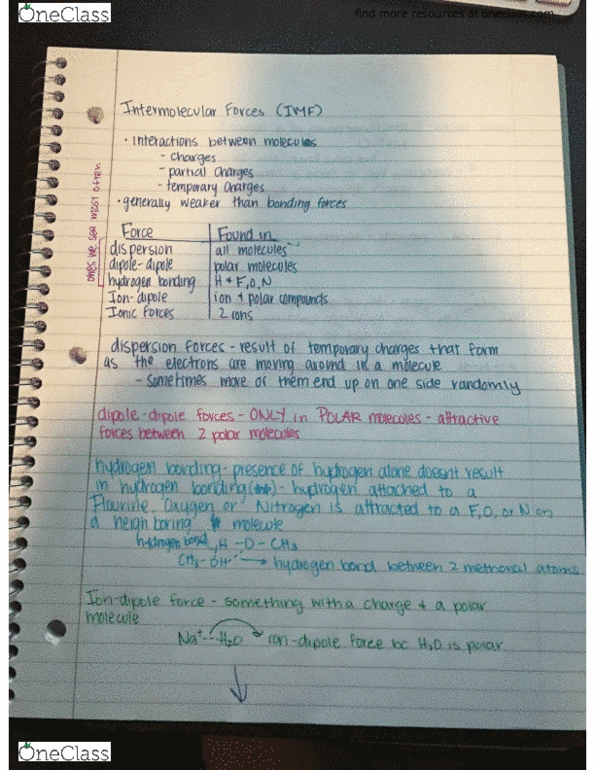 OneClass
find more resources at oneclass.com
Intermolecular Forces (IMF)
· interactions between molecules
- charges
- partial charges
- temporary charges
· generally weaker than bonding forces
ones we see most often
Force Found in
dispersion all molecules
dipole-dipole polar molecules
hydrogen bonding H + F,O,N
Ion-dipole ion + polar compounds
Ionic forces 2 ions
dispersion forces - result of temporary charges that form
as the electrons are moving around in a molecule
- sometimes more of them end up on one side randomly
dipole-dipole forces - ONLY in POLAR molecules - attractive
forces between 2 polar molecules
hydrogen bonding - presence of hydrogen alone doesnt result
in hydrogen bonding - hydrogen attached to a
Flourine, Oxygen or Nitrogen is attracted to a F,O, or N on
a neighboring molecule
hydrogen bond H - O - CH3
CH3 - OH → hydrogen bond between 2 methonal atoms
Ion-dipole force - something with a charge + a polar
molecule
Na+ -- H2O ion-dipole force bc H2O is polar
OneClass